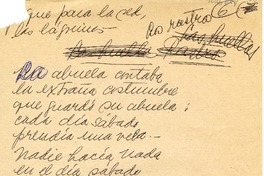 que para la sed
y las lágrimas
los rostros 6
las huellas
La abuela contaba
la extraña costumbre
que guardó su abuela;
cada día sábado
prendía una vela...
Nadie hacía nada
en el día sábado